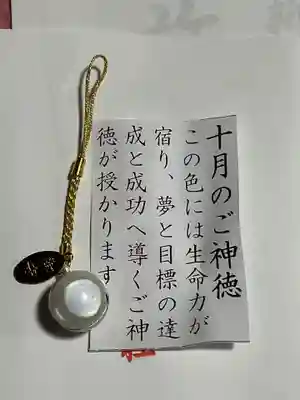 十月のご神徳
この色には生命力が
宿り、夢と目標の達
成と成功へ導くご神
徳が授かります